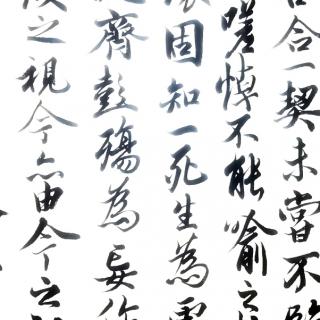 合一契未嘗不臨
嗟悼不能喻之
固知一死生為虛
齊彭殤為妄作
之視今亦由今之